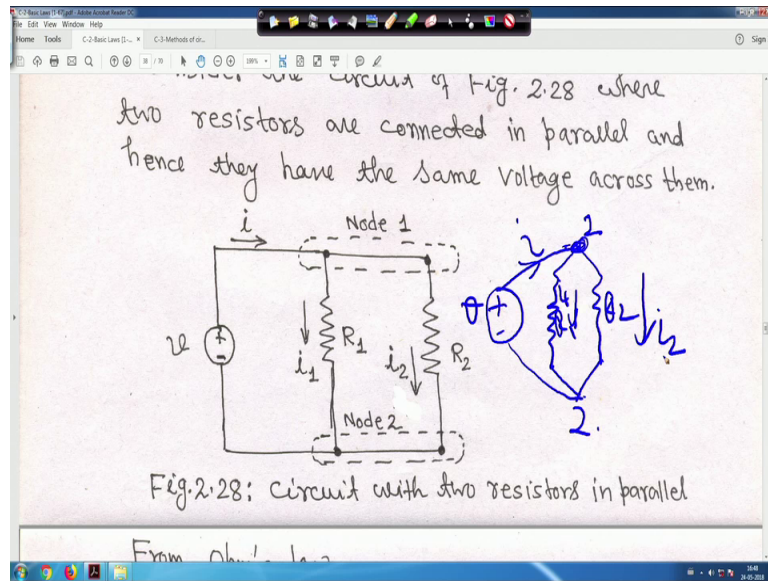 C-2-Basic Laws [1-67].pdf - Adobe Acrobat Reader DC
File Edit View Window Help
Home Tools C-2-Basic Laws [1-... × C-3-Methods of cir... Sign
38 / 70 199%
the circuit of Fig. 2.28 where
two resistors are connected in parallel and
hence they have the same voltage across them.
i Node 1 i 1
v + - i1 R1 i2 R2 + - R2 i2
Node 2 2.
Fig. 2.28: Circuit with two resistors in parallel
From
16:40
24-05-2018